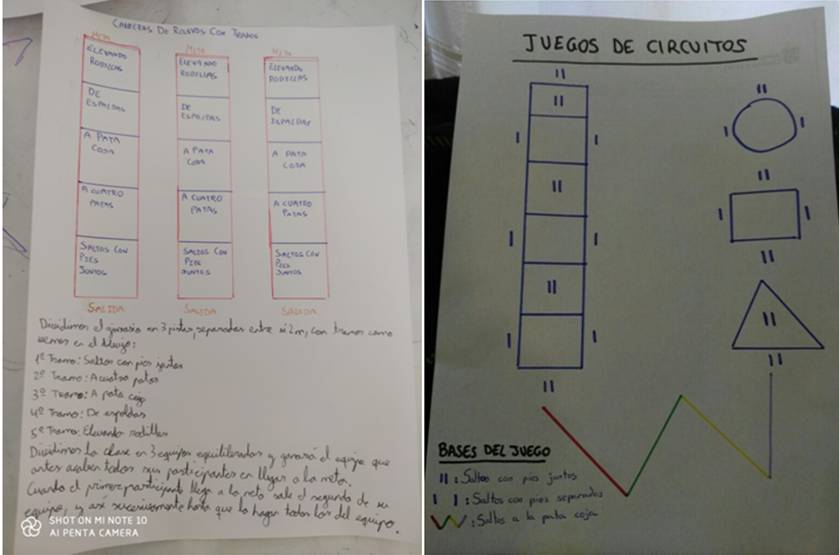 CARRERAS DE RELEVOS CON TRAMOS
META META META
ELEVANDO RODILLAS
DE ESPALDAS
A PATA COJA
A CUATRO PATAS
SALTOS CON PIES JUNTOS
SALIDA
ELEVANDO RODILLAS
DE ESPALDAS
A PATA COJA
A CUATRO PATAS
SALTOS CON PIES JUNTOS
SALIDA
ELEVANDO RODILLAS
DE ESPALDAS
A PATA COJA
A CUATRO PATAS
SALTOS CON PIES JUNTOS
SALIDA
Dividimos el gimnasio en 3 pistas, separadas entre sí 2m, con tramos como
vemos en el dibujo:
1º Tramo: Saltos con pies juntos
2º Tramo: A cuatro patas
3º Tramo: A pata coja
4º Tramo: De espaldas
5º Tramo: Elevando rodillas
Dividimos la clase en 3 equipos equilibrados y ganará el equipo que
antes acaben todos sus participantes en llegar a la meta.
Cuando el primer participante llega a la meta sale el segundo de su
equipo, y así sucesivamente hasta que lo hagan todos los del equipo.
SHOT ON MI NOTE 10
AI PENTA CAMERA
JUEGOS DE CIRCUITOS
BASES DEL JUEGO
II : Saltos con pies juntos
I I : Saltos con pies separados
: Saltos a la pata coja